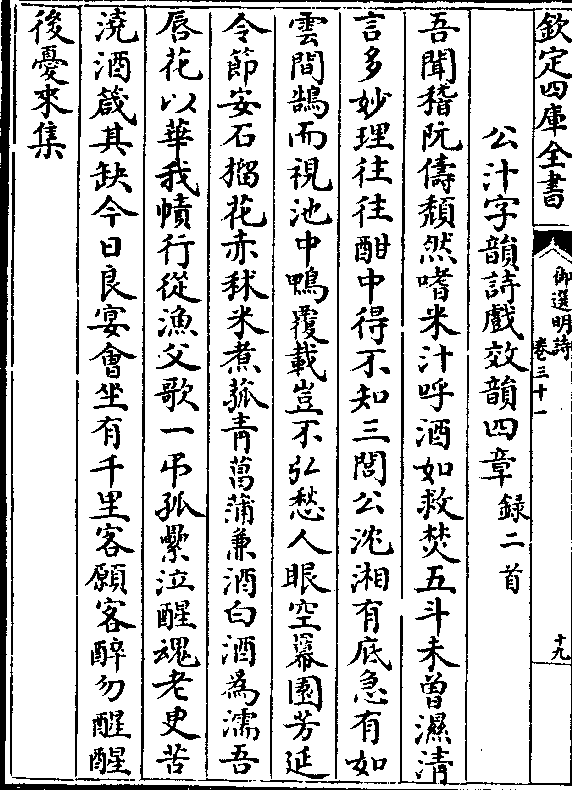 欽定四庫全書
御選明詩
卷三十一
十九
公汁字韻詩戲效韻四章錄二首
吾聞稽阮儔頽然嗜米汁呼酒如救焚五斗未曾濕清
言多妙理往往酣中得不知三閭公沈湘有底急有如
雲間鵠而視池中鴨覆載豈不弘愁人眼空羃園芳延
令節安石榴花赤秫米煮菰青菖蒲兼酒白酒為濡吾
唇花以華我幘行從漁父歌一弔孤纍泣醒魂老更苦
澆酒箴其缺今日良宴會坐有千里客願客醉勿醒醒
後憂來集